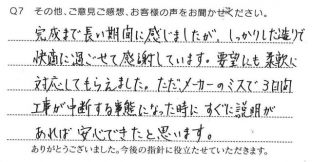 Q7 その他、ご意見ご感想、お客様の声をお聞かせください。
完成まで長い期間に感じましたが、しっかりした造りで
快適に過ごせて感謝しています。要望にも柔軟に
対応してもらえました。ただメーカーのミスで3日間
工事が中断する事態になった時にすぐに説明が
あれば安心できたと思います。
ありがとうございました。今後の指針に役立たせていただきます。